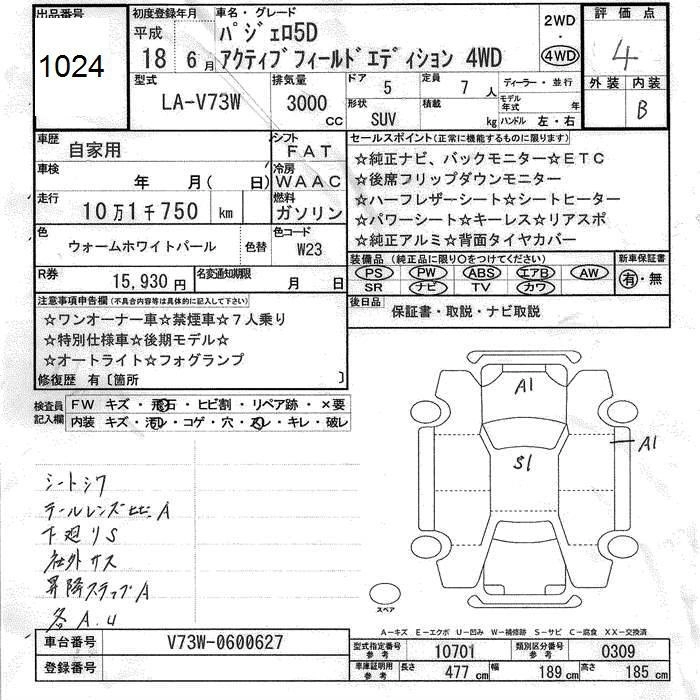 出品番号
1024
初度登録年月
平成
18 6月
車名・グレード
パジェロ5D
アクティブフィールドエディション 4WD
2WD
・
4WD
評価点
4
外装 内装
B
型式
LA-V73W
排気量
3000
cc
ドア
5
定員
7人
形状
SUV
積載
kg
ディーラー・並行
モデル年式 年
ハンドル 左・右
車歴
自家用
シフト
FAT
車検
年 月( 日)
冷房
WAAC
走行
10万1千750 km
燃料
ガソリン
色
ウォームホワイトパール
色替
色コード
W23
R券
15,930円
名変通知期限
月 日
セールスポイント(正常に機能するものに限ります)
☆純正ナビ、バックモニター☆ETC
☆後席フリップダウンモニター
☆ハーフレザーシート☆シートヒーター
☆パワーシート☆キーレス☆リアスポ
☆純正アルミ☆背面タイヤカバー
装備品 (純正品に限り○をつけてください)
PS PW ABS エアB AW
SR ナビ TV カワ
新車保証書
有・無
後日品
保証書・取説・ナビ取説
注意事項申告欄(不具合内容等は具体的に記入して下さい)
☆ワンオーナー車☆禁煙車☆7人乗り
☆特別仕様車☆後期モデル☆
☆オートライト☆フォグランプ
修復歴 有〔箇所 〕
検査員記入欄
FW キズ・飛石・ヒビ割・リペア跡・×要
内装 キズ・汚レ・コゲ・穴・スレ・キレ・破レ
シートシワ
テールレンズヒビ A
下廻りS
社外ガス
昇降ステップA
各A.U
A1
A1
S1
スペア
A−キズ E−エクボ U−凹み W−補修跡 S−サビ C−腐食 XX−交換済
車台番号
V73W-0600627
登録番号
型式指定番号 参考
10701
類別区分番号 参考
0309
車庫証明用 参考
長さ 477 cm
幅 189 cm
高さ 185 cm